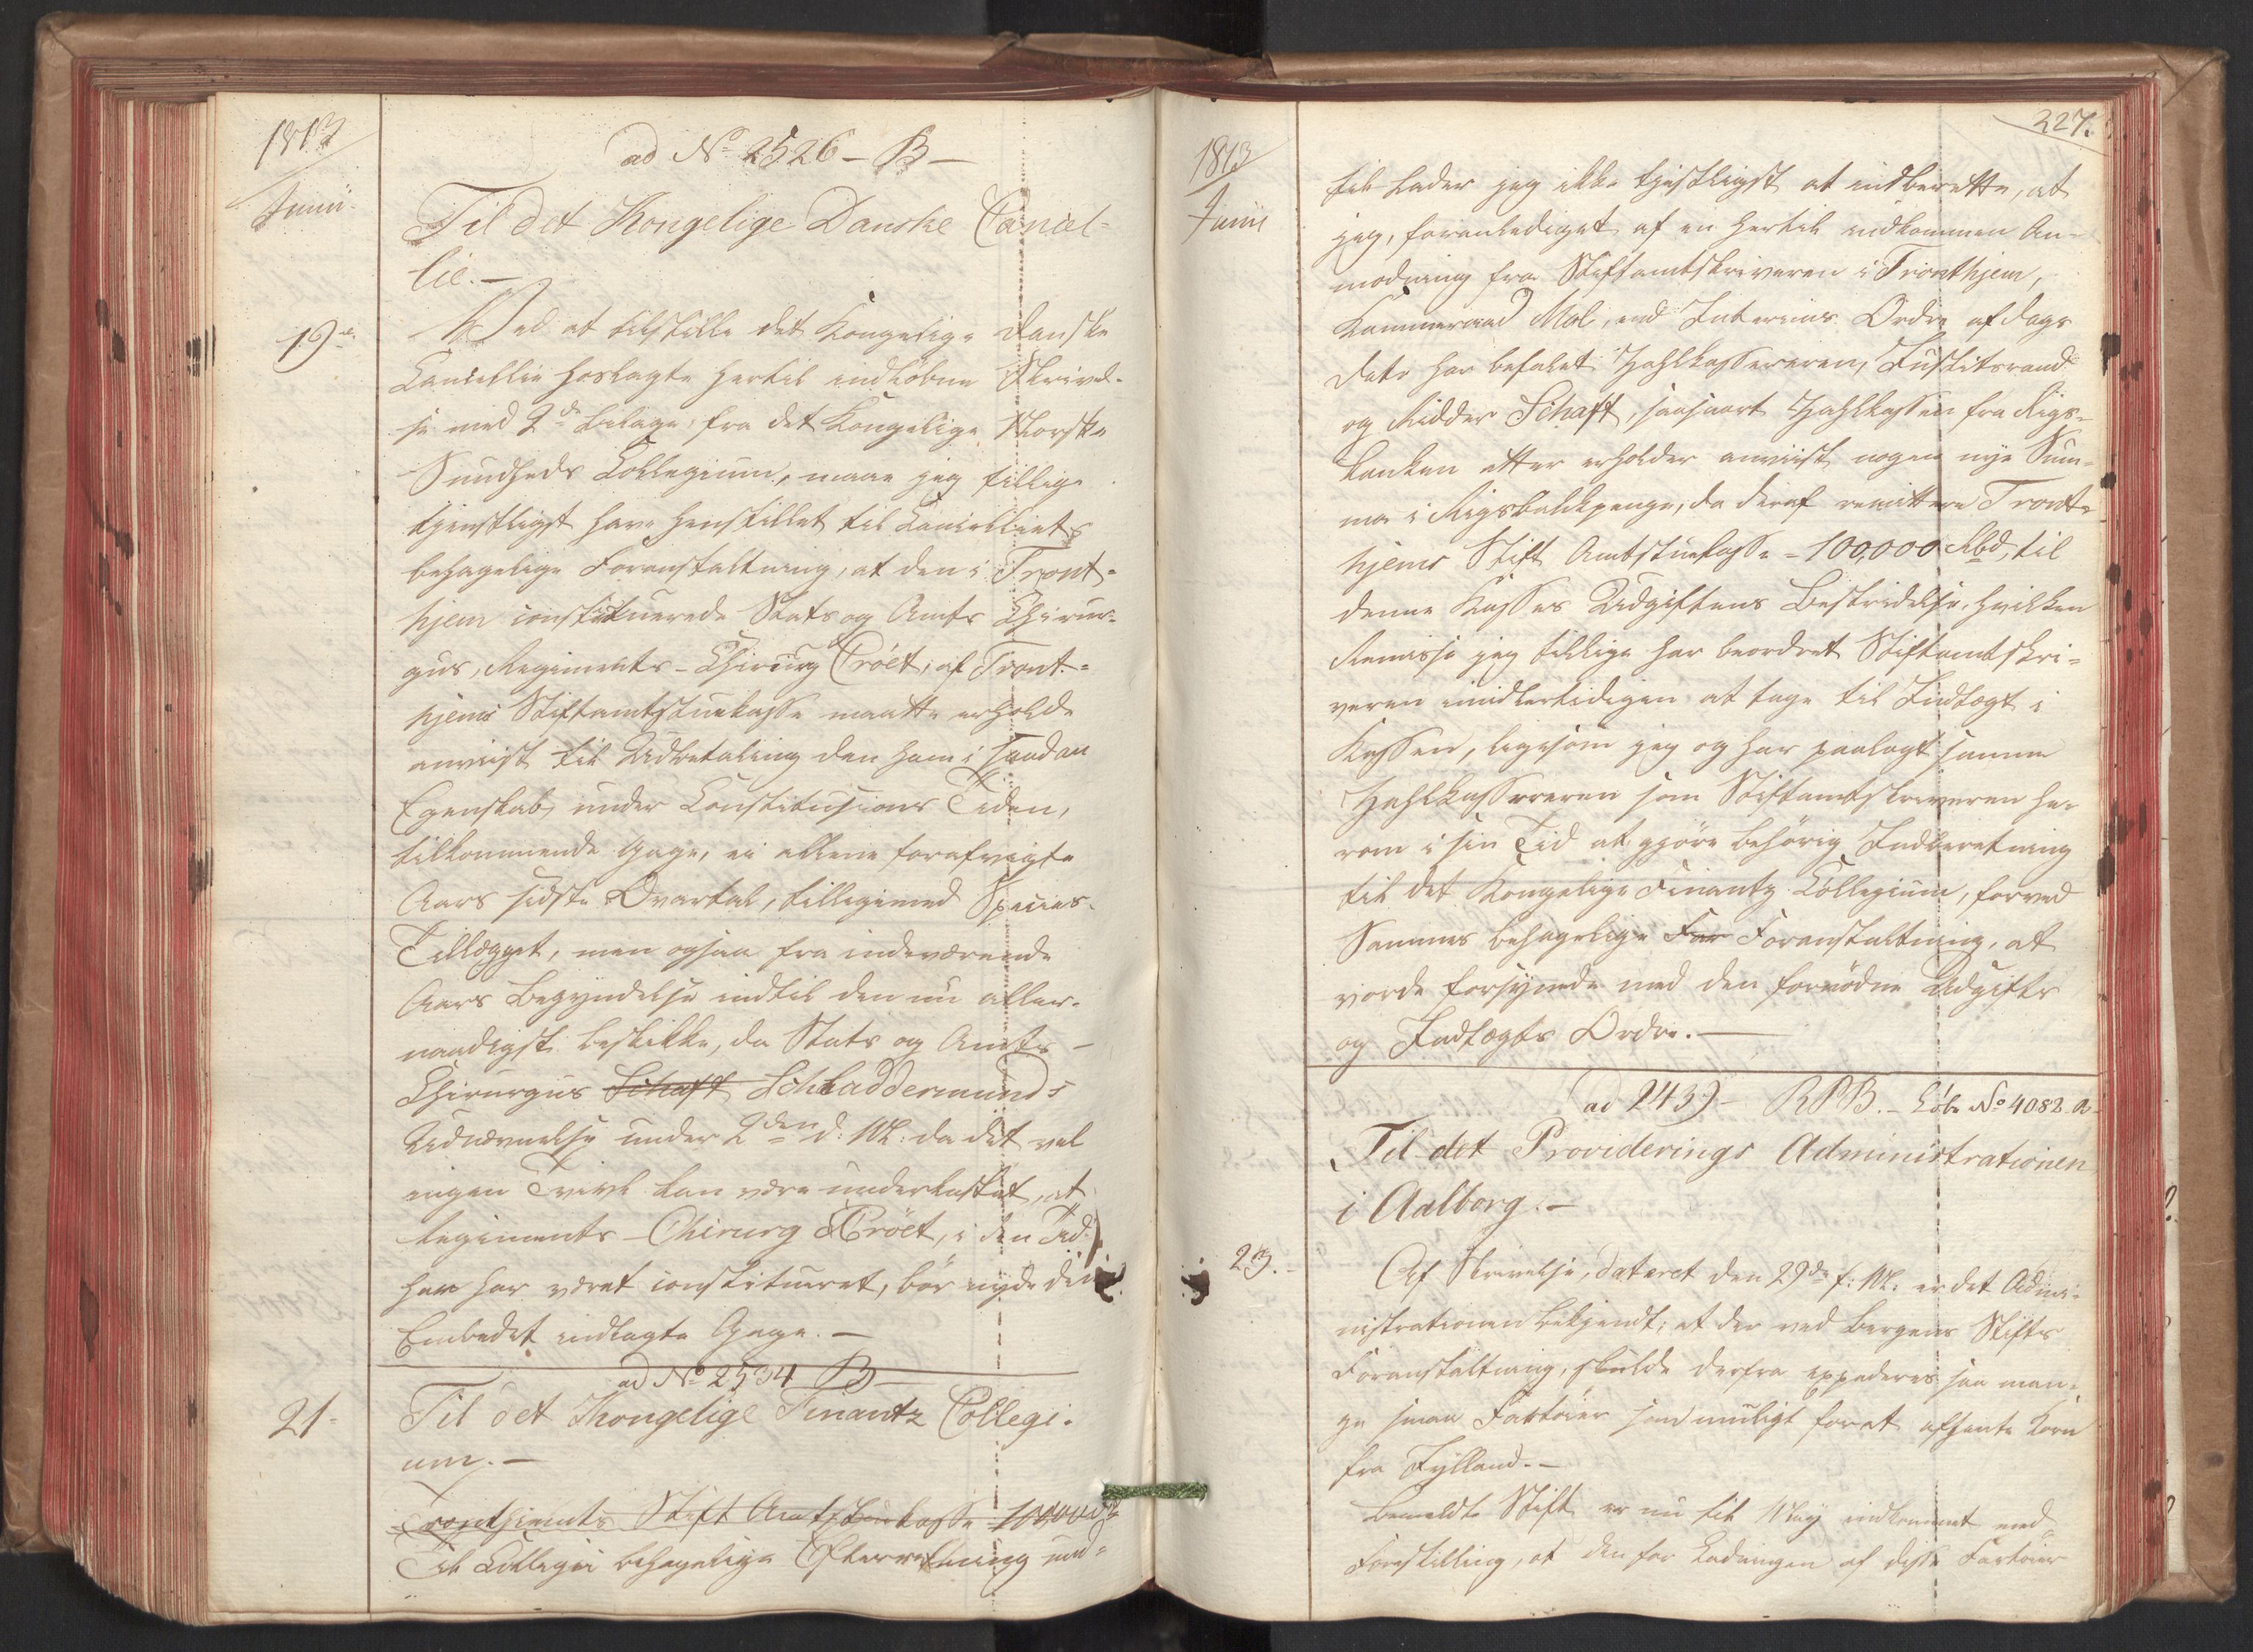 1813
Junii
ad No 2526 - B -
Til det Kongelige Danske Cancel-
lie. -
19de
Ved at tilstille det Kongelige Danske
Cancellie hoslagte hertil indløbne Skrivel-
se med 2de Bilage, fra det Kongelige Norske
Sundheds Collegium, maae jeg tillige
tjenstligst have henstillet til Cancelliets
behagelige Foranstaltning, at den i Tront-
hjem constituerede Stats og Amts Chirur-
gus, Regiments-Chirurg Cröet, af Tront-
hjems Stiftamtstuekasse maatte erholde
anviist til Udbetaling den ham i saadan
Egenskab, under Constitusions Tiden,
tilkommende Gage, ei allene for afvigte
Aars sidste Qvartal, tilligemed Species-
Tillægget, men ogsaa fra indeværende
Aars Begyndelse indtil den nu aller-
naadigst beskikkede Stats og Amts-
Chirurgus Schaft Schaddermunds
Udnævnelse under 2den d: M: da det vel
ingen Tvivl kan være underkastet, at
Regiments-Chirurg Cröet, i den Tid
han har været constitueret, bör nyde den
Embedet indlagte Gage. -
ad No 2534 B
21-
Til det Kongelige Finantz Collegi-
um. -
Tronthjems Stift Amtstuekasse 100,000
Til Collegii behagelige Efterretning und-
227.
1813
Junii
lader jeg ikke tjenstligst at indberette, at
jeg, foranlediget af en hertil indkommen An-
modning fra Stiftamtskriveren i Tronthjem,
Kammerraad Mol, ved Interims Ordre af Dags
Dato har befalet Zahlkassereren, Justitsraad
og Ridder Schaft, saasnart Zahlkassen fra Rigs-
banken atter erholder anviist nogen nye Sum-
ma i Rigsbankpenge, da deraf remittere Tront-
hjems Stift Amtstuekasse - 100,000 Rbd, til
denne Kasses Udgifters Bestridelse, hvilken
Remisse jeg tillige har beordret Stiftamtskri-
veren imidlertidigen at tage til Indtægt i
Kassen, ligesom jeg og har paalagt samme
Zahlkassereren som Stiftamtskriveren he-
rom i sin Tid at gjöre behörig Indberetning
til det Kongelige Finantz Collegium, for ved
Sammes behagelige For Foranstaltning, at
vorde forsynede med den fornödne Udgifts
og Indtægts Ordre. -
ad 2439 - RPB. - Löbe No 4082. a
Til det Providerings Administrationen
i Aalborg. -
23.
Af Skrivelse, dateret den 29de f: M. er det Admi-
nistrationen bekjendt, at der ved Bergens Stifts
Foranstaltning, skulde derfra expederes saa man-
ge smaa Fartöier som muligt for at afhente Korn
fra Jylland. -
Bemeldte Stift er nu til mig indkommet med
Forestilling, at den for Ladningen af disse Fartöier